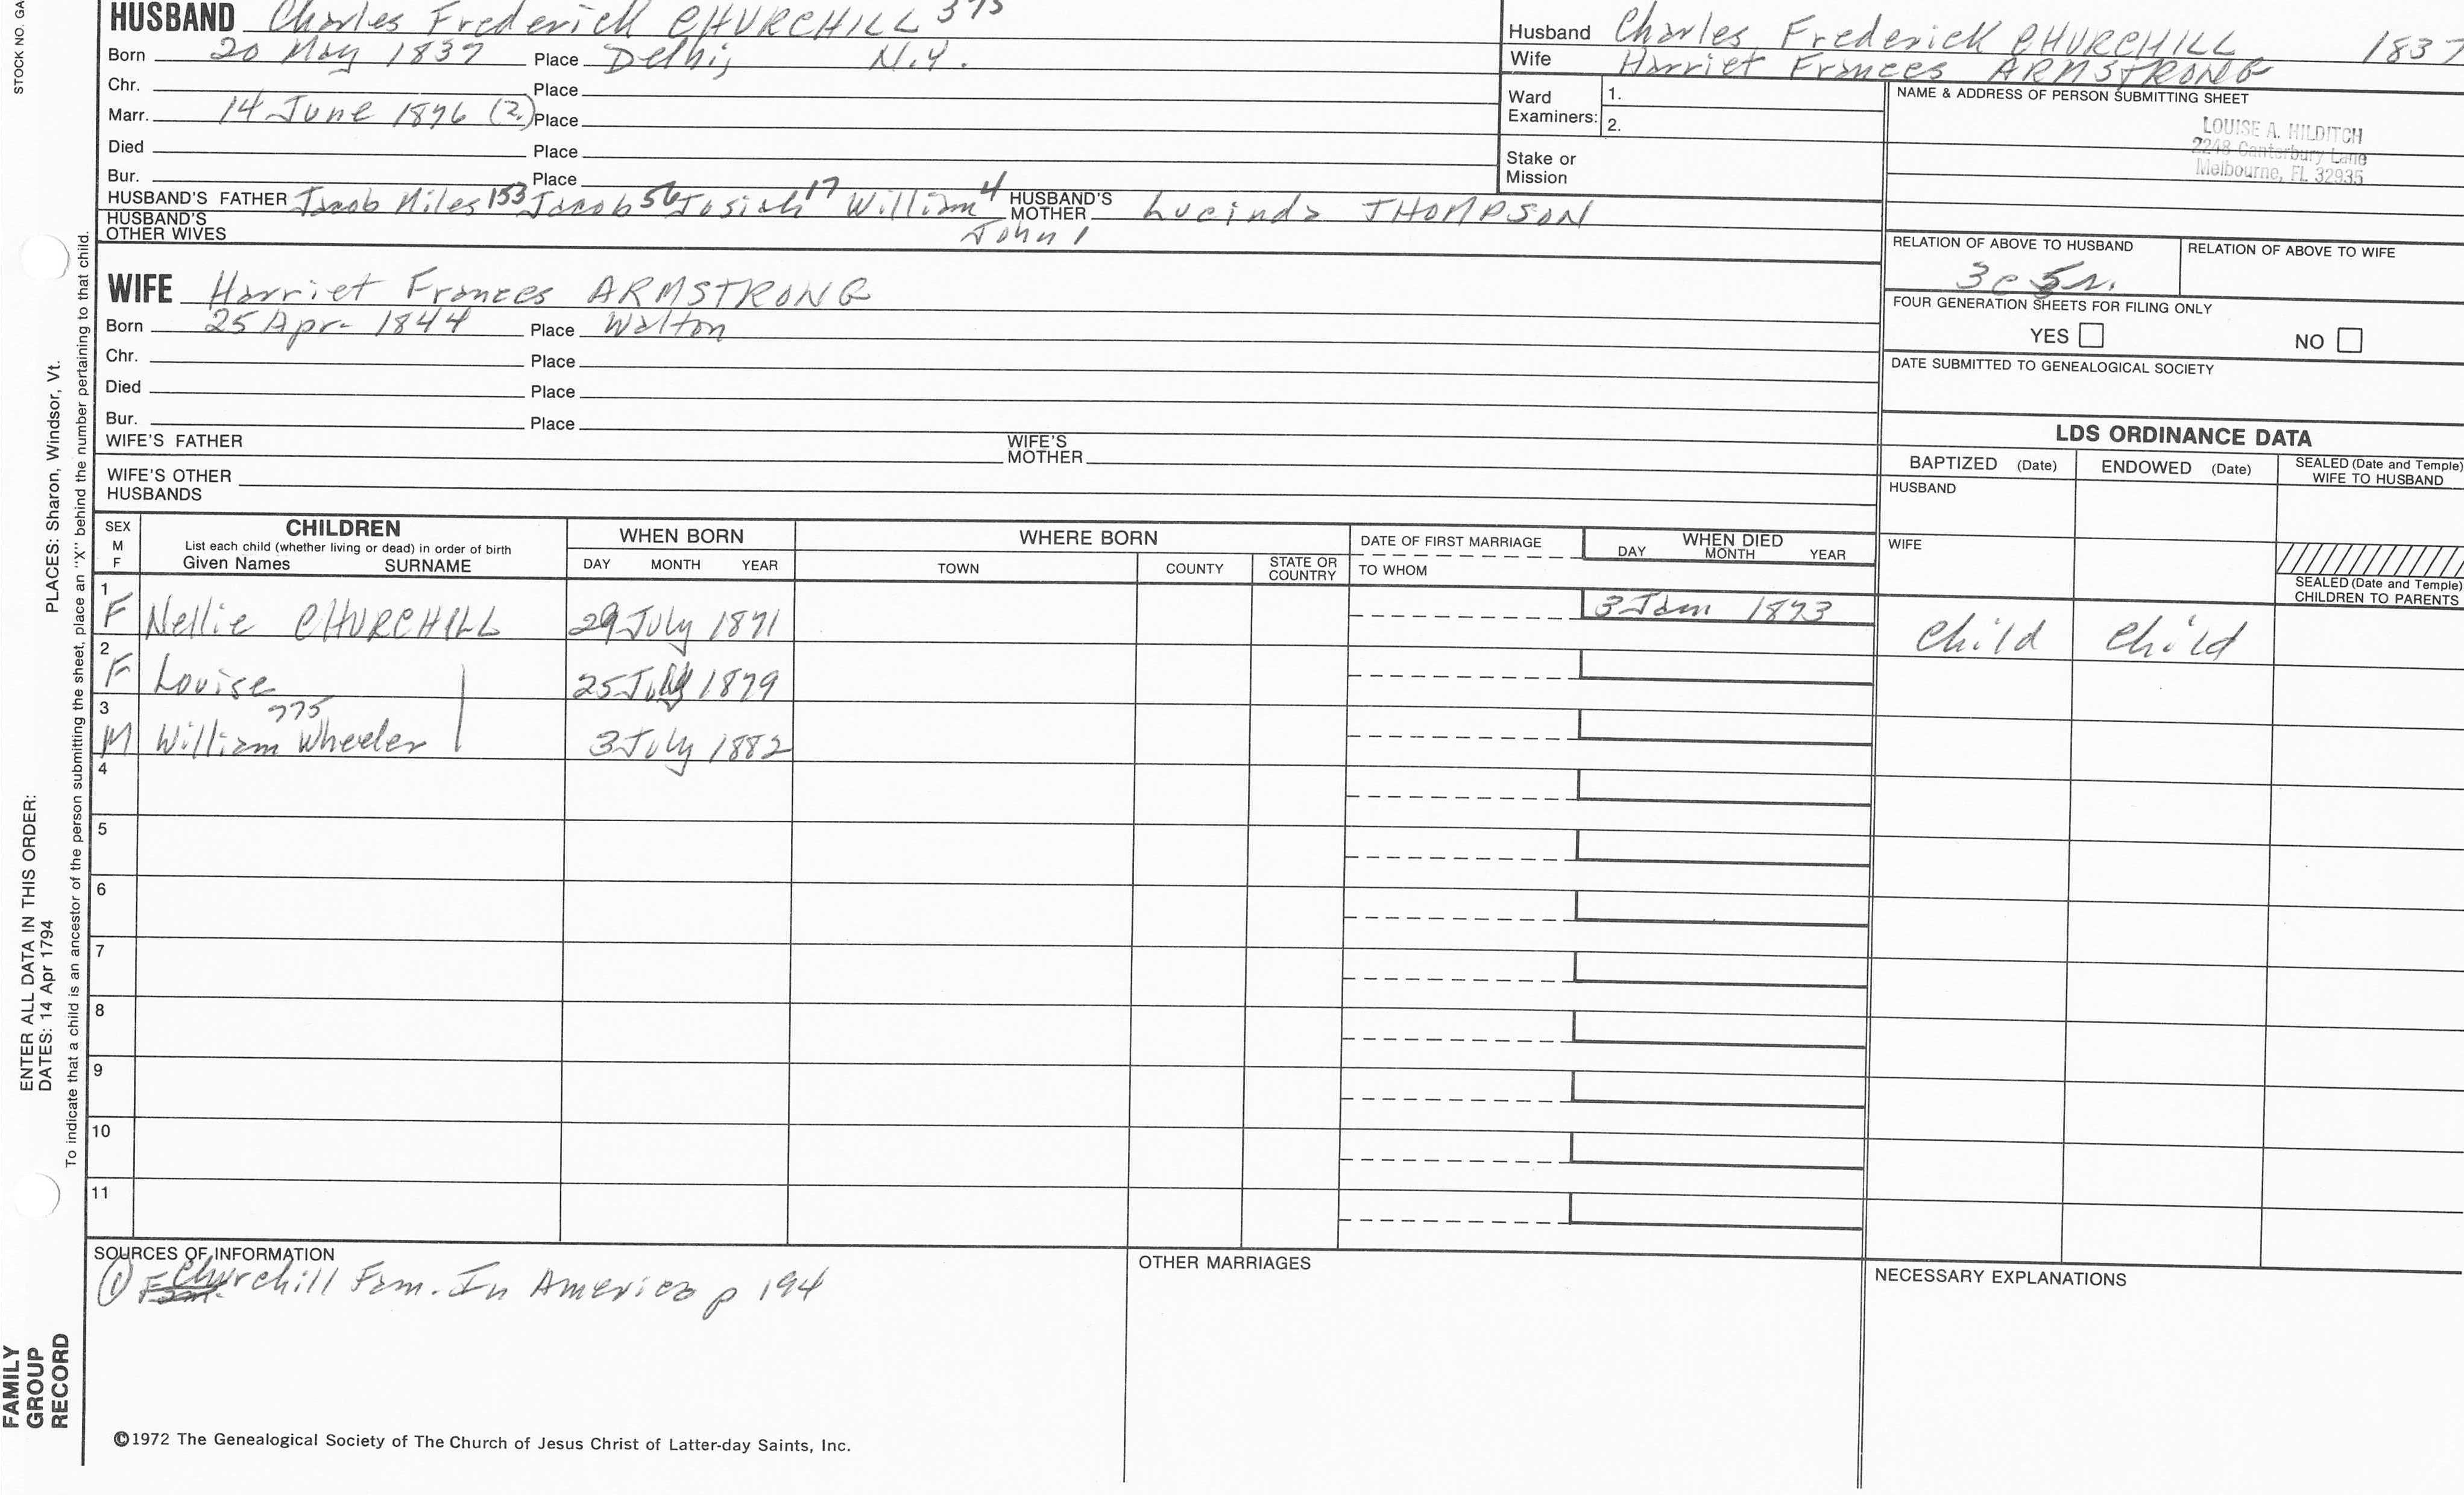 STOCK NO. GA
HUSBAND Charles Frederick CHURCHILL 375
Born 20 May 1837 Place Delhi, N.Y.
Chr. Place
Marr. 14 June 1876 (2) Place
Died Place
Bur. Place
HUSBAND'S FATHER Jacob Miles 153 Jacob 56 Josiah 17 William 4 HUSBAND'S MOTHER Lucinda THOMPSON
John 1
HUSBAND'S OTHER WIVES
WIFE Harriet Frances ARMSTRONG
Born 25 Apr- 1844 Place Walton
Chr. Place
Died Place
Bur. Place
WIFE'S FATHER WIFE'S MOTHER
WIFE'S OTHER HUSBANDS
Husband Charles Frederick CHURCHILL 1837
Wife Harriet Frances ARMSTRONG
Ward Examiners: 1.
2.
Stake or Mission
NAME & ADDRESS OF PERSON SUBMITTING SHEET
LOUISE A. HILDITCH
2248 Canterbury Lane
Melbourne, FL 32935
RELATION OF ABOVE TO HUSBAND RELATION OF ABOVE TO WIFE
3c 5r.
FOUR GENERATION SHEETS FOR FILING ONLY
YES NO
DATE SUBMITTED TO GENEALOGICAL SOCIETY
LDS ORDINANCE DATA
BAPTIZED (Date) ENDOWED (Date) SEALED (Date and Temple) WIFE TO HUSBAND
HUSBAND
WIFE
SEALED (Date and Temple) CHILDREN TO PARENTS
SEX M F CHILDREN WHEN BORN WHERE BORN DATE OF FIRST MARRIAGE WHEN DIED
List each child (whether living or dead) in order of birth
Given Names SURNAME DAY MONTH YEAR TOWN COUNTY STATE OR COUNTRY TO WHOM DAY MONTH YEAR
1 F Nellie CHURCHILL 29 July 1871 3 Jan 1873 Child Child
2 F Louise 25 July 1879
3 M William Wheeler 775 3 July 1882
4
5
6
7
8
9
10
11
SOURCES OF INFORMATION
① Churchill Fam. In America p 194
OTHER MARRIAGES
NECESSARY EXPLANATIONS
©1972 The Genealogical Society of The Church of Jesus Christ of Latter-day Saints, Inc.
To indicate that a child is an ancestor of the person submitting the sheet, place an "X" behind the number pertaining to that child.
ENTER ALL DATA IN THIS ORDER:
DATES: 14 Apr 1794
PLACES: Sharon, Windsor, Vt.
FAMILY
GROUP
RECORD